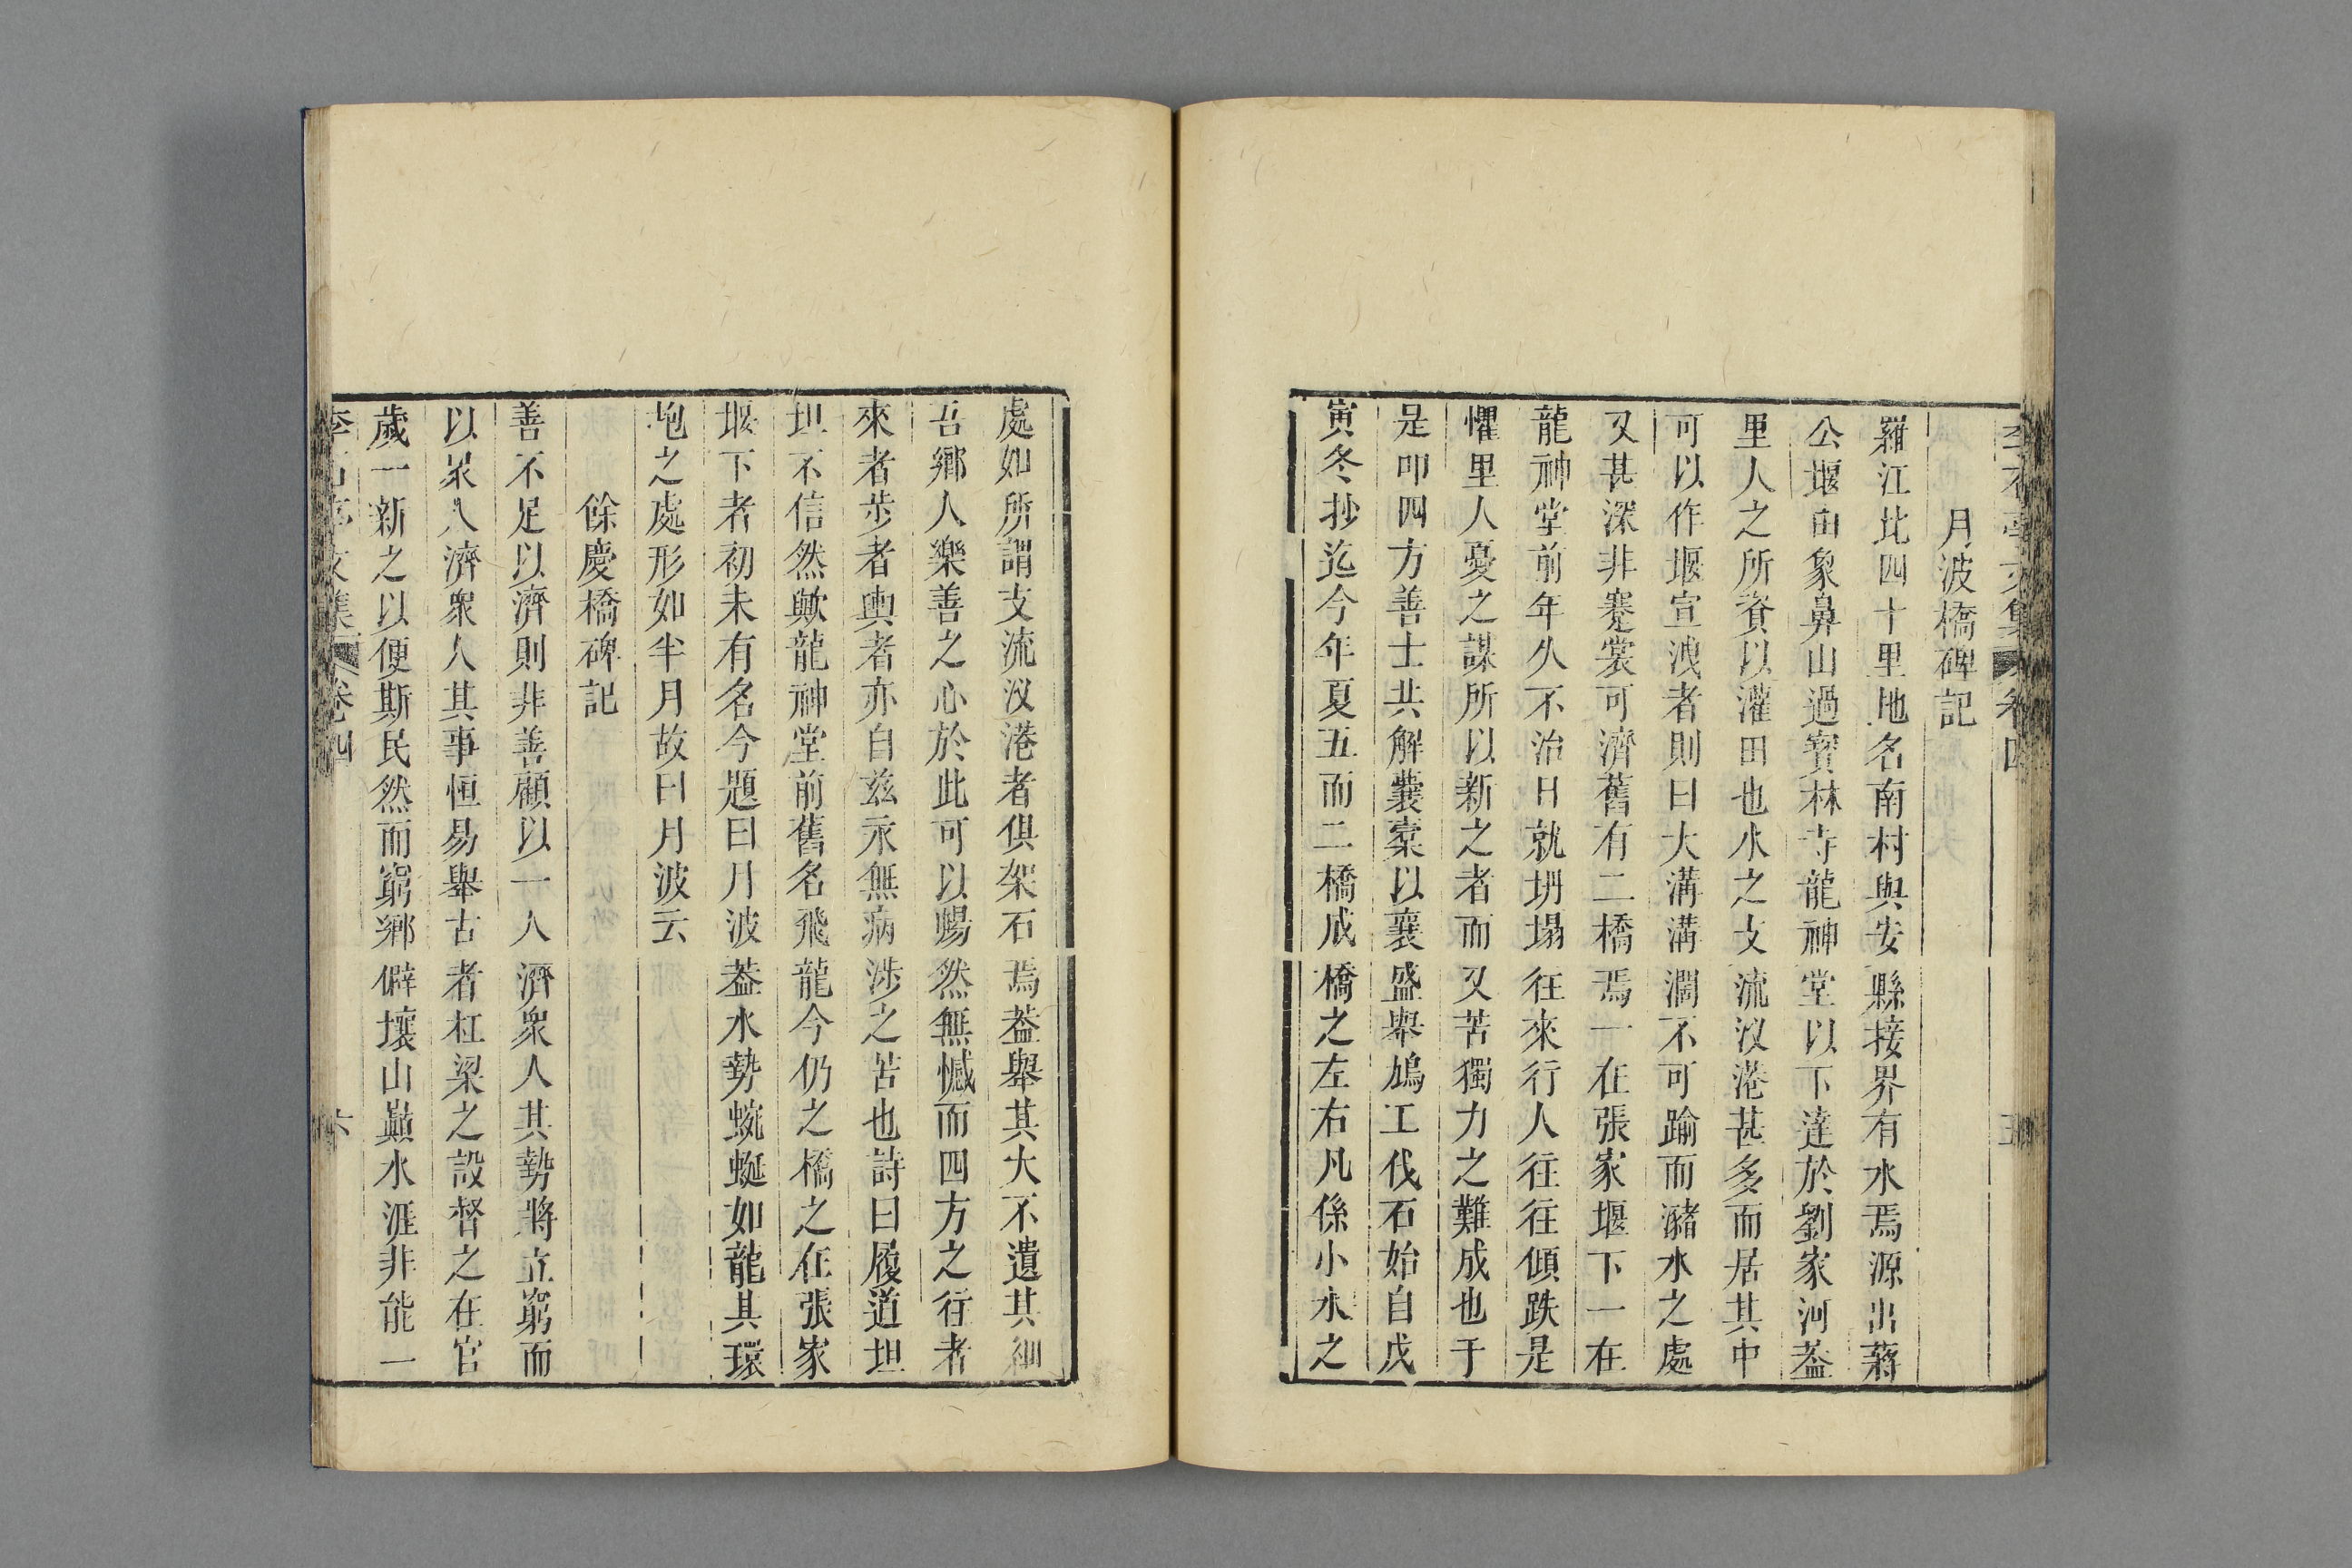 李石亭文集 卷四 五
月波橋碑記
羅江北四十里地名南村與安縣接界有水焉源出蔣
公堰由象鼻山過寳林寺龍神堂以下達於劉家河葢
里人之所資以灌田也水之支流汊港甚多而居其中
可以作堰宣洩者則曰大溝溝濶不可踰而瀦水之處
又甚深非蹇裳可濟舊有二橋焉一在張家堰下一在
龍神堂前年久不治日就坍塌往來行人往往傾跌是
懼里人憂之謀所以新之者而又苦獨力之難成也于
是叩四方善士共解囊橐以襄盛舉鳩工伐石始自戊
寅冬抄迄今年夏五而二橋成橋之左右凡係小水之
處如所謂支流汊港者俱架石焉葢舉其大不遺其細
吾鄉人樂善之心於此可以暢然無憾而四方之行者
來者步者輿者亦自兹永無病涉之苦也詩曰履道坦
坦不信然歟龍神堂前舊名飛龍今仍之橋之在張家
堰下者初未有名今題曰月波葢水勢蜿蜒如龍其環
抱之處形如半月故曰月波云
餘慶橋碑記
善不足以濟則非善顧以一人濟衆人其勢將立窮而
以衆人濟衆人其事恒易舉古者杠梁之設督之在官
歲一新之以便斯民然而窮鄉僻壤山巔水涯非能一
李石亭文集 卷四 六